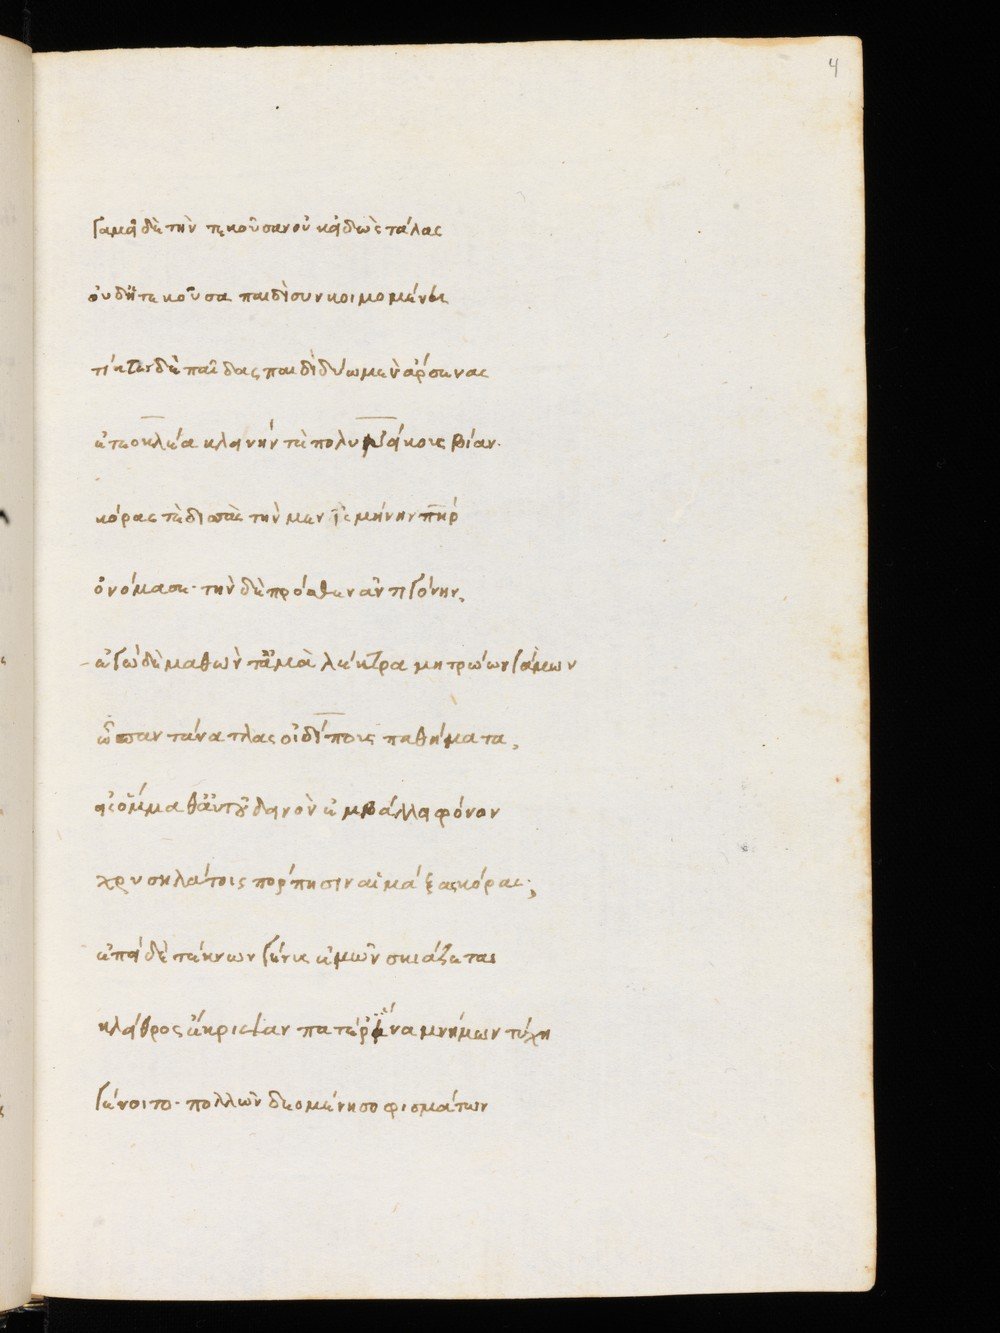 4
γαμεῖ δὲ τὴν τεκοῦσαν οὐκ εἰδὼς τάλας
οὐδ' ἡ τεκοῦσα παιδὶ συνκοιμομένη
τίκτω δὲ παῖδας παιδὶ δύω μὲν ἄρσενας
ἐτεοκλέα κλεινήν τε πολυνείκους βίαν.
κόρας τὲ δισσὰς τὴν μεν ἰσμήνην πηρ
ὀνόμασε· τὴν δὲ πρόσθεν ἀντιγόνην,
ἐγὼ δὲ μαθὼν τἀμὰ λέκτρα μητρώων γάμων
ὦ παντ' ἀνατλας οἰδίπους παθήματα,
εἰς ὄμμα θ' αὑτοῦ δεινὸν ἐμβάλλει φόνον
χρυσηλάτοις πόρπησιν αἱμάξας κόρας;
ἐπεὶ δὲ τέκνων γένυς ἐμῶν σκιάζεται
κλείθροις ἔκρυψαν πατέρ' ἵν' ἀμνήμων τύχη
γένοιτο· πολλῶν δεομένη σοφισμάτων